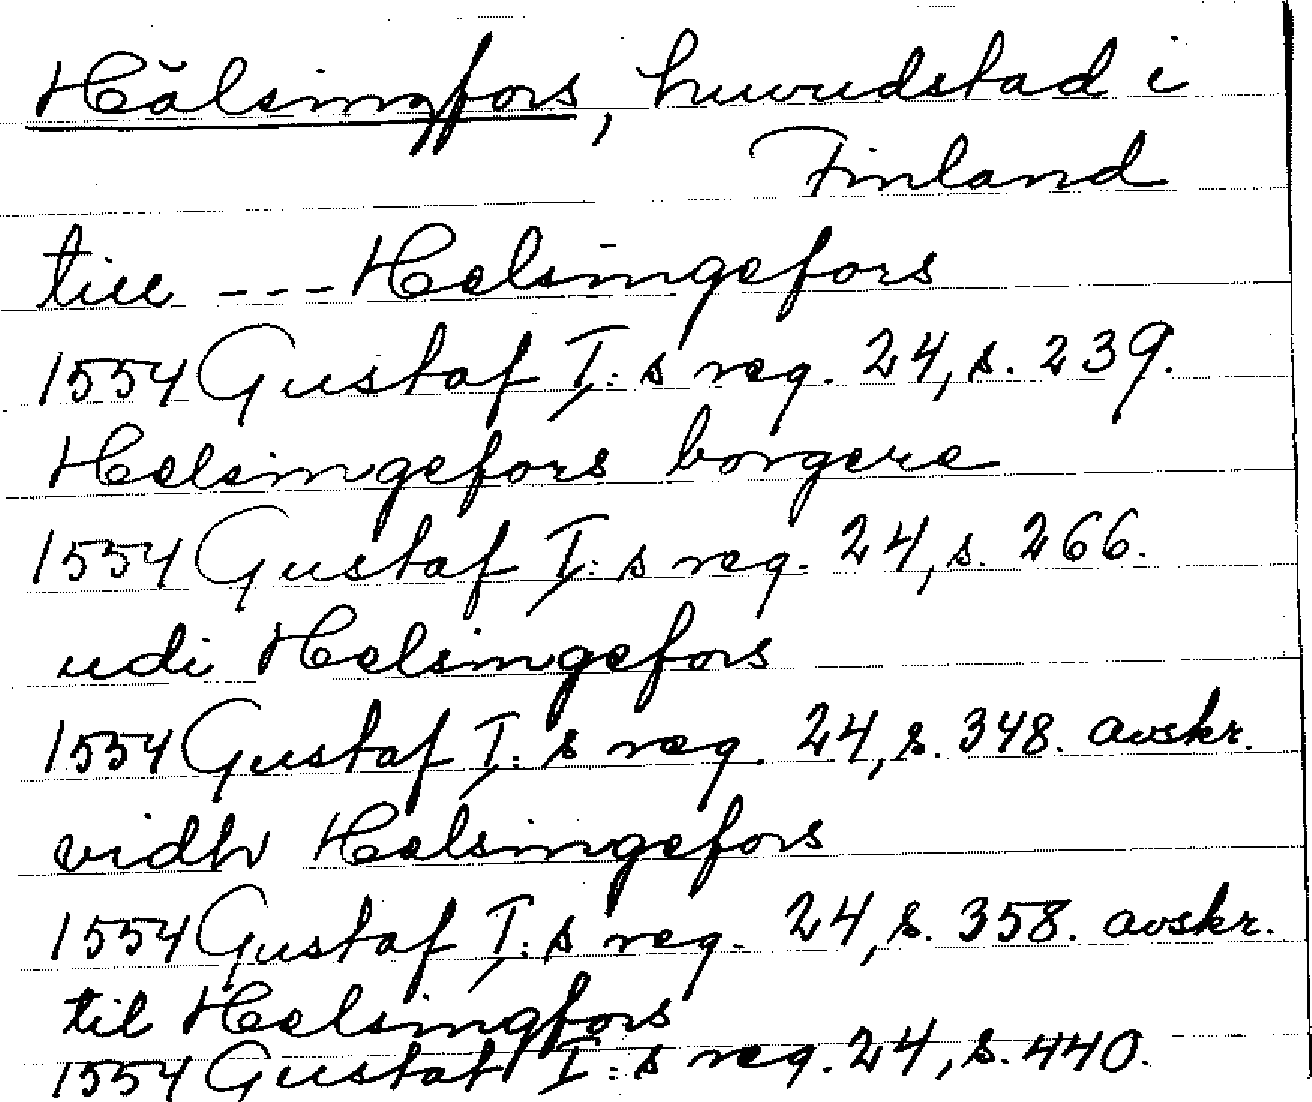 Hälsingfors, huvudstad i
Finland
till --- Helsingefors
1554 Gustaf I:s reg. 24, s. 239.
Helsingefors borgere
1554 Gustaf I:s reg. 24, s. 266.
udi Helsingefors
1554 Gustaf I:s reg. 24, s. 348. avskr.
vidh Helsingefors
1554 Gustaf I:s reg. 24, s. 358. avskr.
til Helsingfors
1554 Gustaf I:s reg. 24, s. 440.